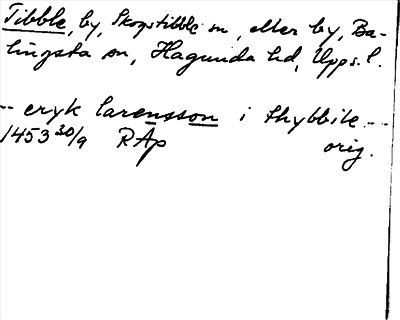 Tibble, by, Skogstibble sn, eller by, Ba-
lingsta sn, Hagunda hd, Upps. l.
-- eryk larensson i thybbile --
1453 30/9 RAp orig.